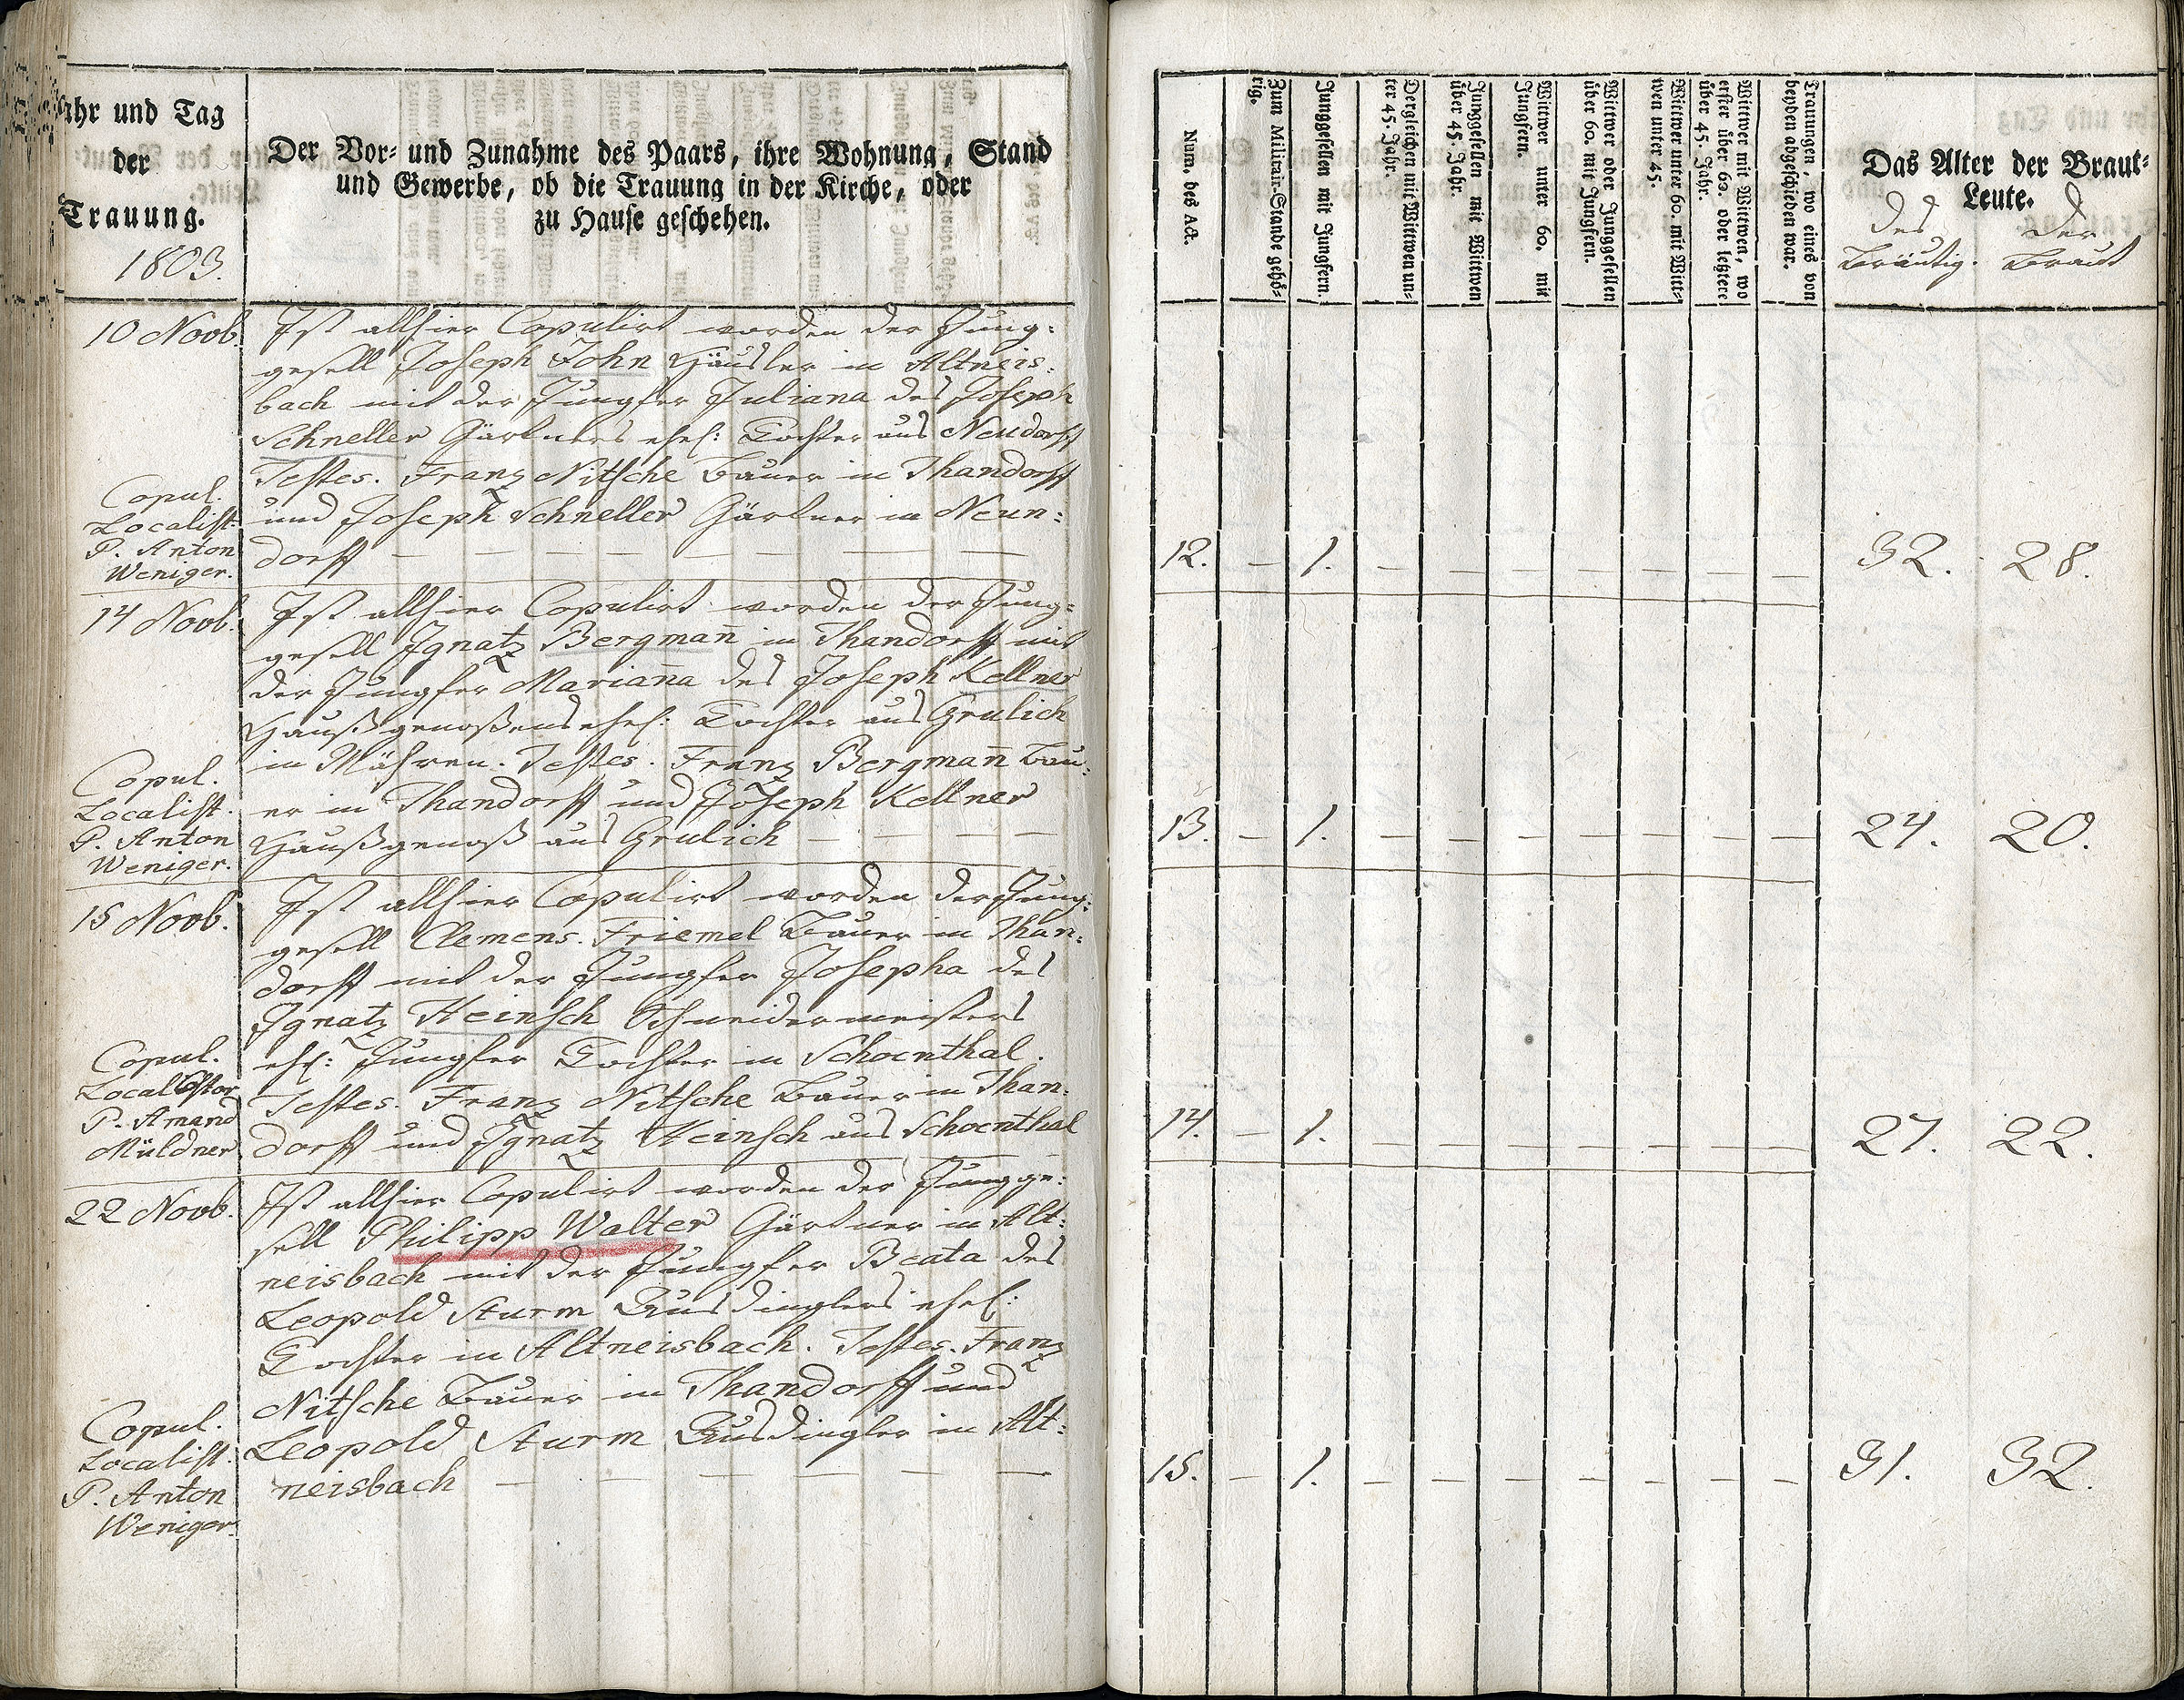 Jahr und Tag
der
Trauung.
1803.
Der Vor- und Zunahme des Paars, ihre Wohnung, Stand
und Gewerbe, ob die Trauung in der Kirche, oder
zu Hause geschehen.
10 Novb.
Ist allhier Copulirt worden der Jung-
gesell Joseph John Häusler in Altneis-
bach mit der Jungfer Juliana des Joseph
Schneller Gärtners ehel: Tochter aus Neudorff
Testes. Franz Nitsche Bauer in Thandorff
und Joseph Schneller Gärtner in Neun-
dorff
Copul.
Localist.
P. Anton
Weniger.
14 Novb.
Ist allhier Copulirt worden der Jung-
gesell Ignatz Bergman̄ in Thandorff mit
der Jungfer Marian̄a des Joseph Kellner
Haußgenoßens ehel: Tochter aus Grulich
in Mähren. Testes. Franz Bergman̄ Bau-
er in Thandorff und Joseph Kellner
Haußgenoß aus Grulich
Copul.
Localist.
P. Anton
Weniger.
15 Novb.
Ist allhier Copulirt worden der Jung-
gesell Clemens Friemel Bauer in Than-
dorff mit der Jungfer Josepha des
Ignatz Heinsch Schneidermeisters
ehl: Jungfer Tochter in Schoenthal.
Testes. Franz Nitsche Bauer in Than-
dorff und Ignatz Heinsch aus Schoenthal
Copul.
P. Amand
Müldner
22 Novb.
Ist allhier Copulirt worden der Jungge-
sell Philipp Walter Gärtner in Alt-
neisbach mit der Jungfer Beata des
Leopold Sturm Ausdinglers ehel:
Tochter in Altneisbach. Testes. Franz
Nitsche Bauer in Thandorff und
Leopold Sturm Ausdingler in Alt-
neisbach
Copul.
Localist.
P. Anton
Weniger.
Num. des Act.
Zum Militair-Stande gehörig.
Junggesellen mit Jungfern.
Dergleichen mit Wittwen unter 45. Jahr.
Junggesellen mit Wittwen über 45. Jahr.
Wittwer unter 60. mit Jungfern.
Wittwer oder Junggesellen über 60. mit Jungfern.
Wittwer unter 60. mit Wittwen unter 45.
Wittwer mit Wittwen, wo erster über 60. oder letztere über 45. Jahr.
Trauungen, wo eines von beyden abgeschieden war.
Das Alter der Braut-
Leute.
des Bräutig. der Braut
12. – 1. – – – – – – – 32. 28.
13. – 1. – – – – – – – 24. 20.
14. – 1. – – – – – – – 27. 22.
15. – 1. – – – – – – – 31. 32.